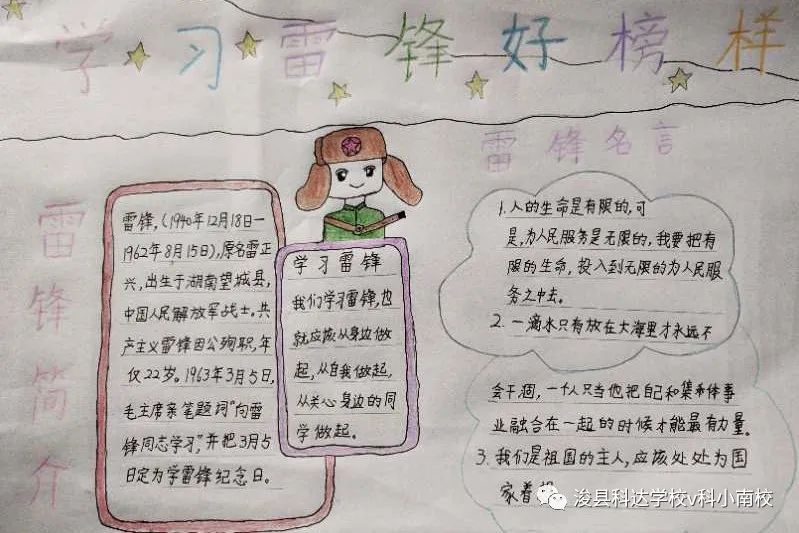 学习雷锋好榜样
雷锋简介
雷锋,(1940年12月18日—
1962年8月15日),原名雷正
兴,出生于湖南望城县,
中国人民解放军战士。共
产主义雷锋因公殉职,年
仅22岁。1963年3月5日,
毛主席亲笔题词"向雷
锋同志学习",并把3月5
日定为学雷锋纪念日。
学习雷锋
我们学习雷锋,也
就应该从身边做
起,从自我做起,
从关心身边的同
学做起。
雷锋名言
1.人的生命是有限的,可
是,为人民服务是无限的,我要把有
限的生命,投入到无限的为人民服
务之中去。
2.一滴水只有放在大海里才永远不
会干涸,一个人只当他把自己和集体事
业融合在一起的时候才能最有力量。
3.我们是祖国的主人,应该处处为国
家着想
浚县科达学校v科小南校